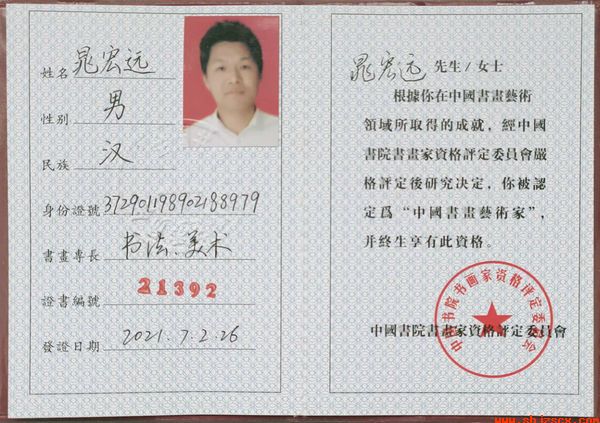 姓名 晁宏远
性别 男
民族 汉
身份證號 372901198902188979
書畫專長 书法、美术
證書編號 21392
發證日期 2021.7.2.26
晁宏远 先生/女士
根據你在中國書畫藝術
領域所取得的成就，經中國
書院書畫家資格評定委員會嚴
格評定後研究决定，你被認
定爲“中國書畫藝術家”，
并終生享有此資格。
中国书院书画家资格评定委员会
中國書院書畫家資格評定委員會
www.shjzscx.com